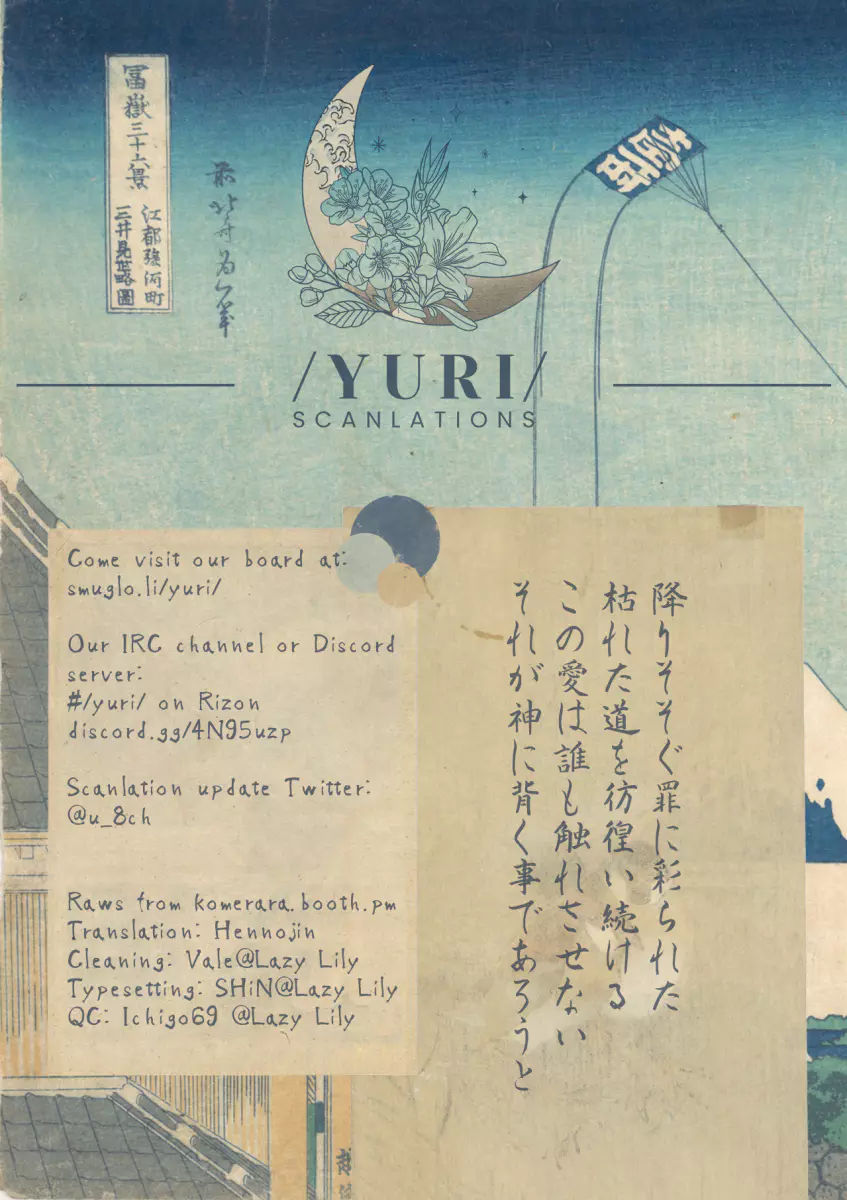 冨嶽三十六景
江都駿河町
三井見世略圖
前北斎為一筆
壽
/YURI/
SCANLATIONS
Come visit our board at:
smuglo.li/yuri/
Our IRC channel or Discord
server:
#/yuri/ on Rizon
discord.gg/4N95uzp
Scanlation update Twitter:
@u_8ch
Raws from komerara.booth.pm
Translation: Hennojin
Cleaning: Vale@Lazy Lily
Typesetting: SHiN@Lazy Lily
QC: Ichigo69 @Lazy Lily
降りそそぐ罪に彩られた
枯れた道を彷徨い続ける
この愛は誰も触れさせない
それが神に背く事であろうと